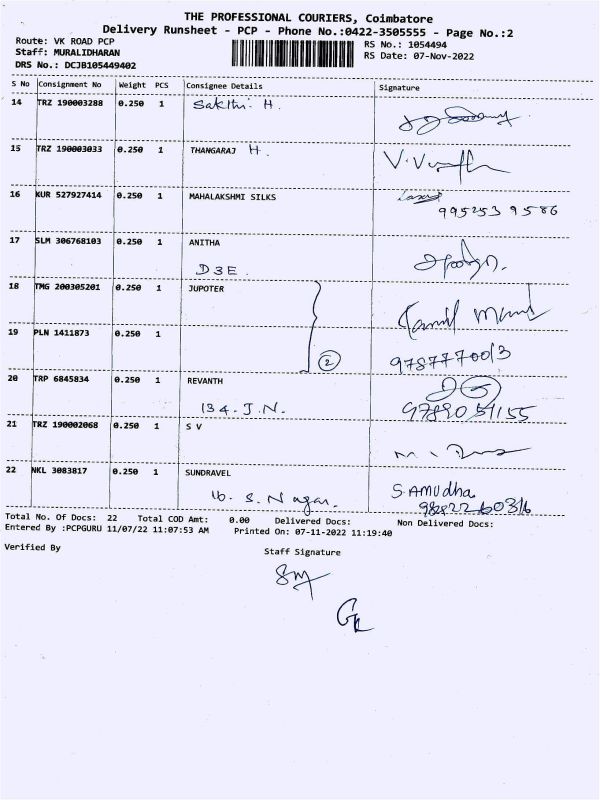 THE PROFESSIONAL COURIERS, Coimbatore
Delivery Runsheet - PCP - Phone No.:0422-3505555 - Page No.:2
Route: VK ROAD PCP
RS No.: 1054494
Staff: MURALIDHARAN
RS Date: 07-Nov-2022
DRS No.: DCJB105449402
S No Consignment No Weight PCS Consignee Details Signature
14 TRZ 190003288 0.250 1 Sakthi. H.
15 TRZ 190003033 0.250 1 THANGARAJ H.
16 KUR 527927414 0.250 1 MAHALAKSHMI SILKS
995253 9586
17 SLM 306768103 0.250 1 ANITHA
D3E.
18 TMG 200305201 0.250 1 JUPOTER
19 PLN 1411873 0.250 1
2
9787770013
20 TRP 6845834 0.250 1 REVANTH
134. J.N.
21 TRZ 190002068 0.250 1 S V
22 NKL 3083817 0.250 1 SUNDRAVEL
16. S. Nagar.
S.AMUdha
Total No. Of Docs: 22 Total COD Amt: 0.00 Delivered Docs: Non Delivered Docs:
Entered By :PCPGURU 11/07/22 11:07:53 AM Printed On: 07-11-2022 11:19:40
Verified By
Staff Signature